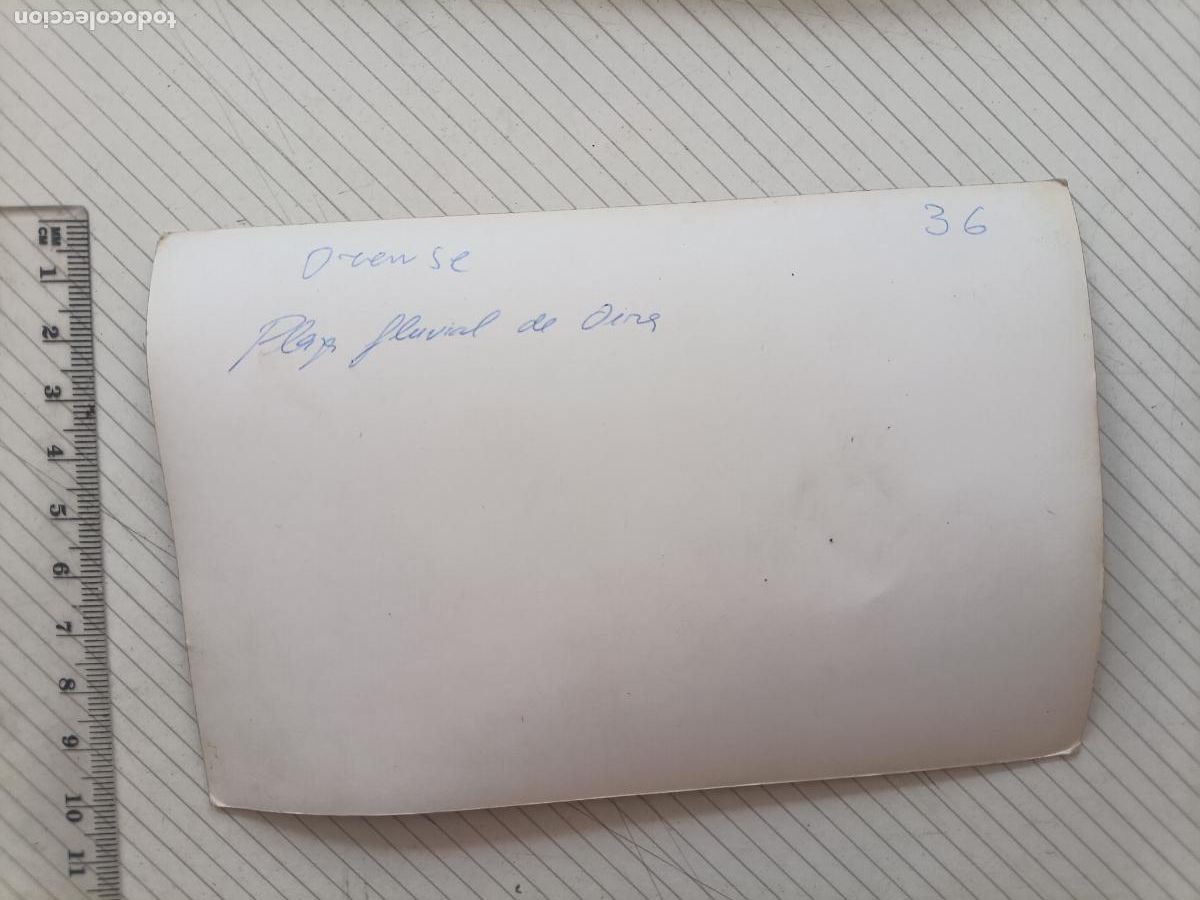 todocoleccion
36
Orense
Playa fluvial de Oira
MM
CM
1
2
3
4
5
6
7
8
9
10
11